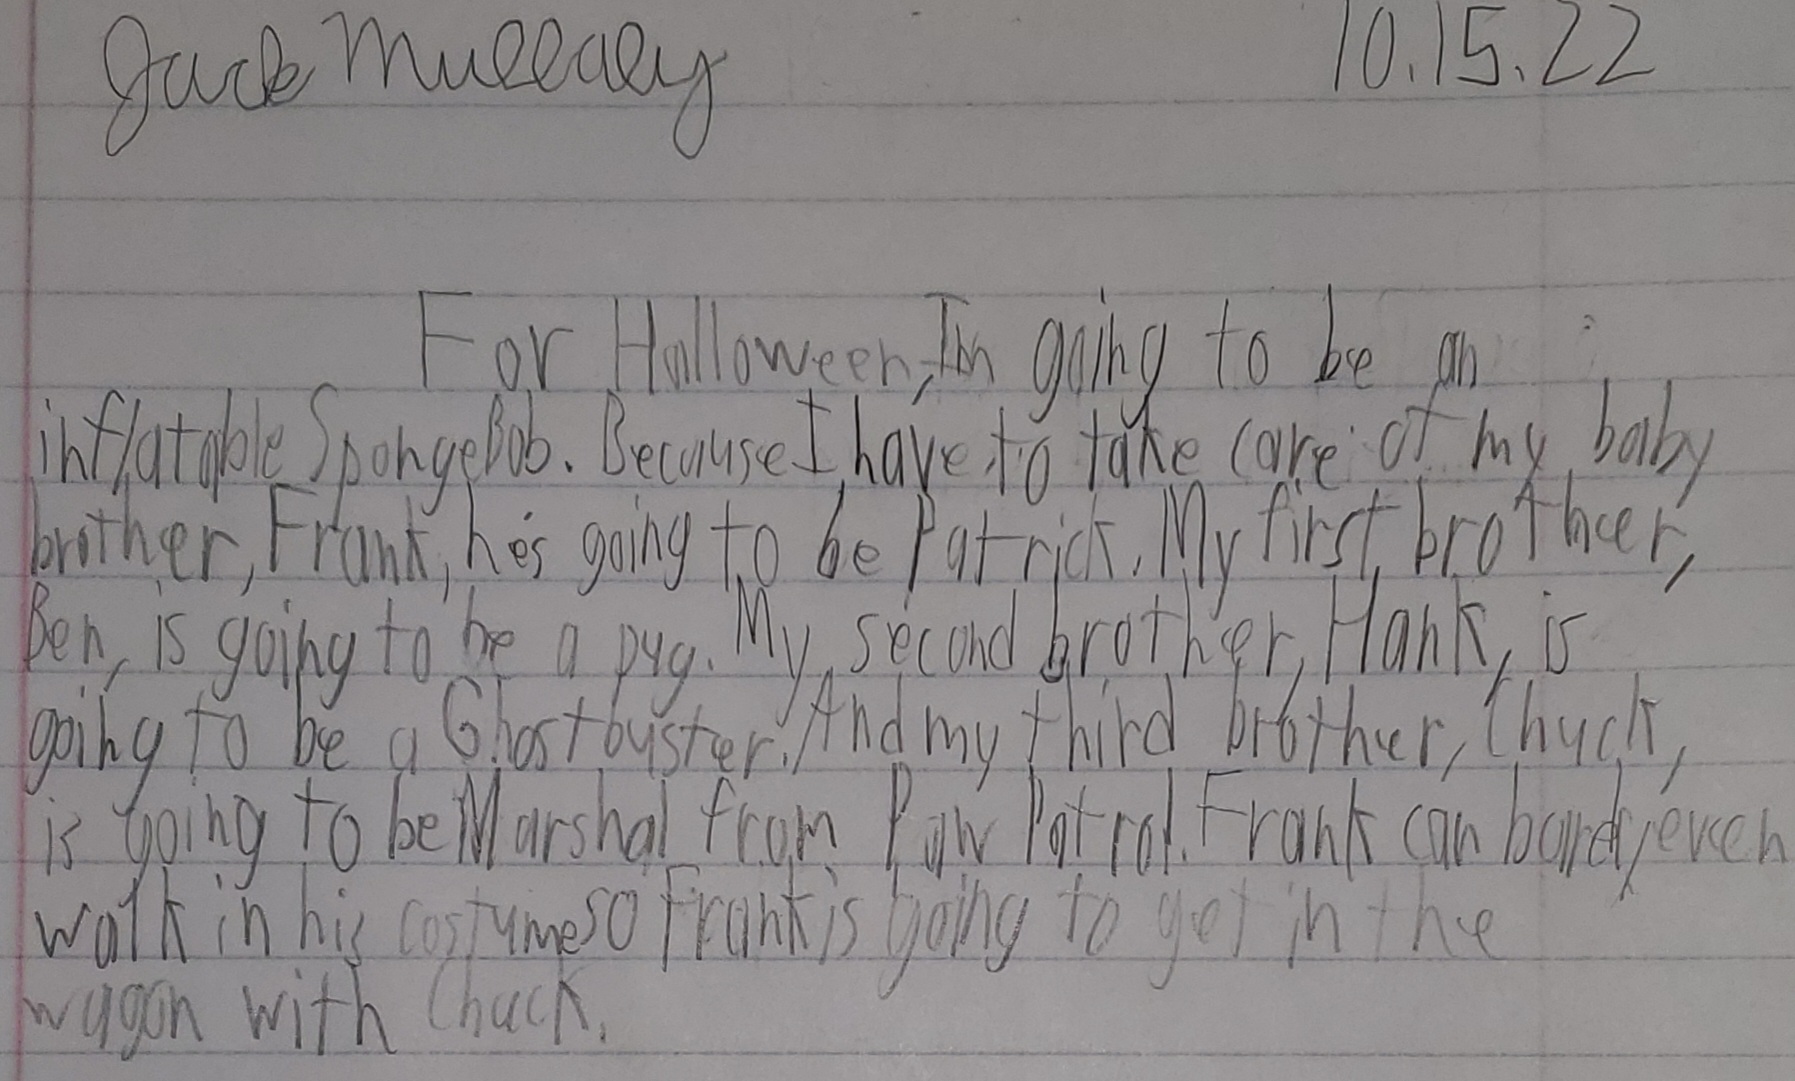 Jack Mullaly 10.15.22
For Halloween, I'm going to be an
inflatable SpongeBob. Because I have to take care of my baby
brother, Frank, he's going to be Patrick. My first brother,
Ben, is going to be a pug. My second brother, Hank, is
going to be a Ghostbuster. And my third brother, Chuck,
is going to be Marshal from Paw Patrol. Frank can bardly even
walk in his costume so Frank is going to get in the
wagon with Chuck.